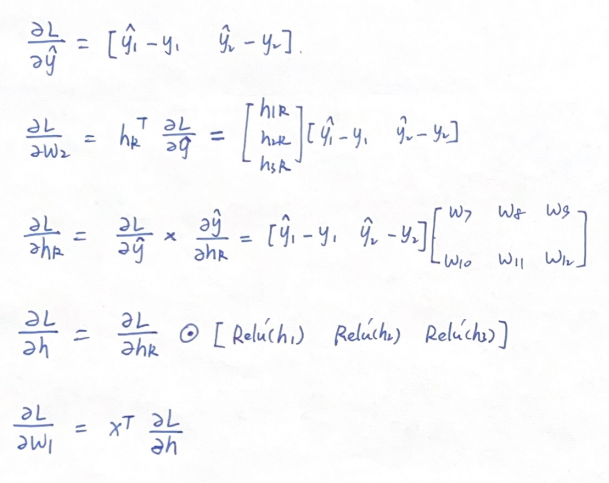 ∂L/∂ŷ = [ŷ₁ - y₁   ŷ₂ - y₂].
∂L/∂W₂ = h_R^T ∂L/∂ŷ = [h₁R h₂R h₃R] [ŷ₁ - y₁   ŷ₂ - y₂]
∂L/∂h_R = ∂L/∂ŷ × ∂ŷ/∂h_R = [ŷ₁ - y₁   ŷ₂ - y₂] [W₇ W₈ W₉ W₁₀ W₁₁ W₁₂]
∂L/∂h = ∂L/∂h_R ⊙ [Relu′(h₁)   Relu′(h₂)   Relu′(h₃)]
∂L/∂W₁ = x^T ∂L/∂h